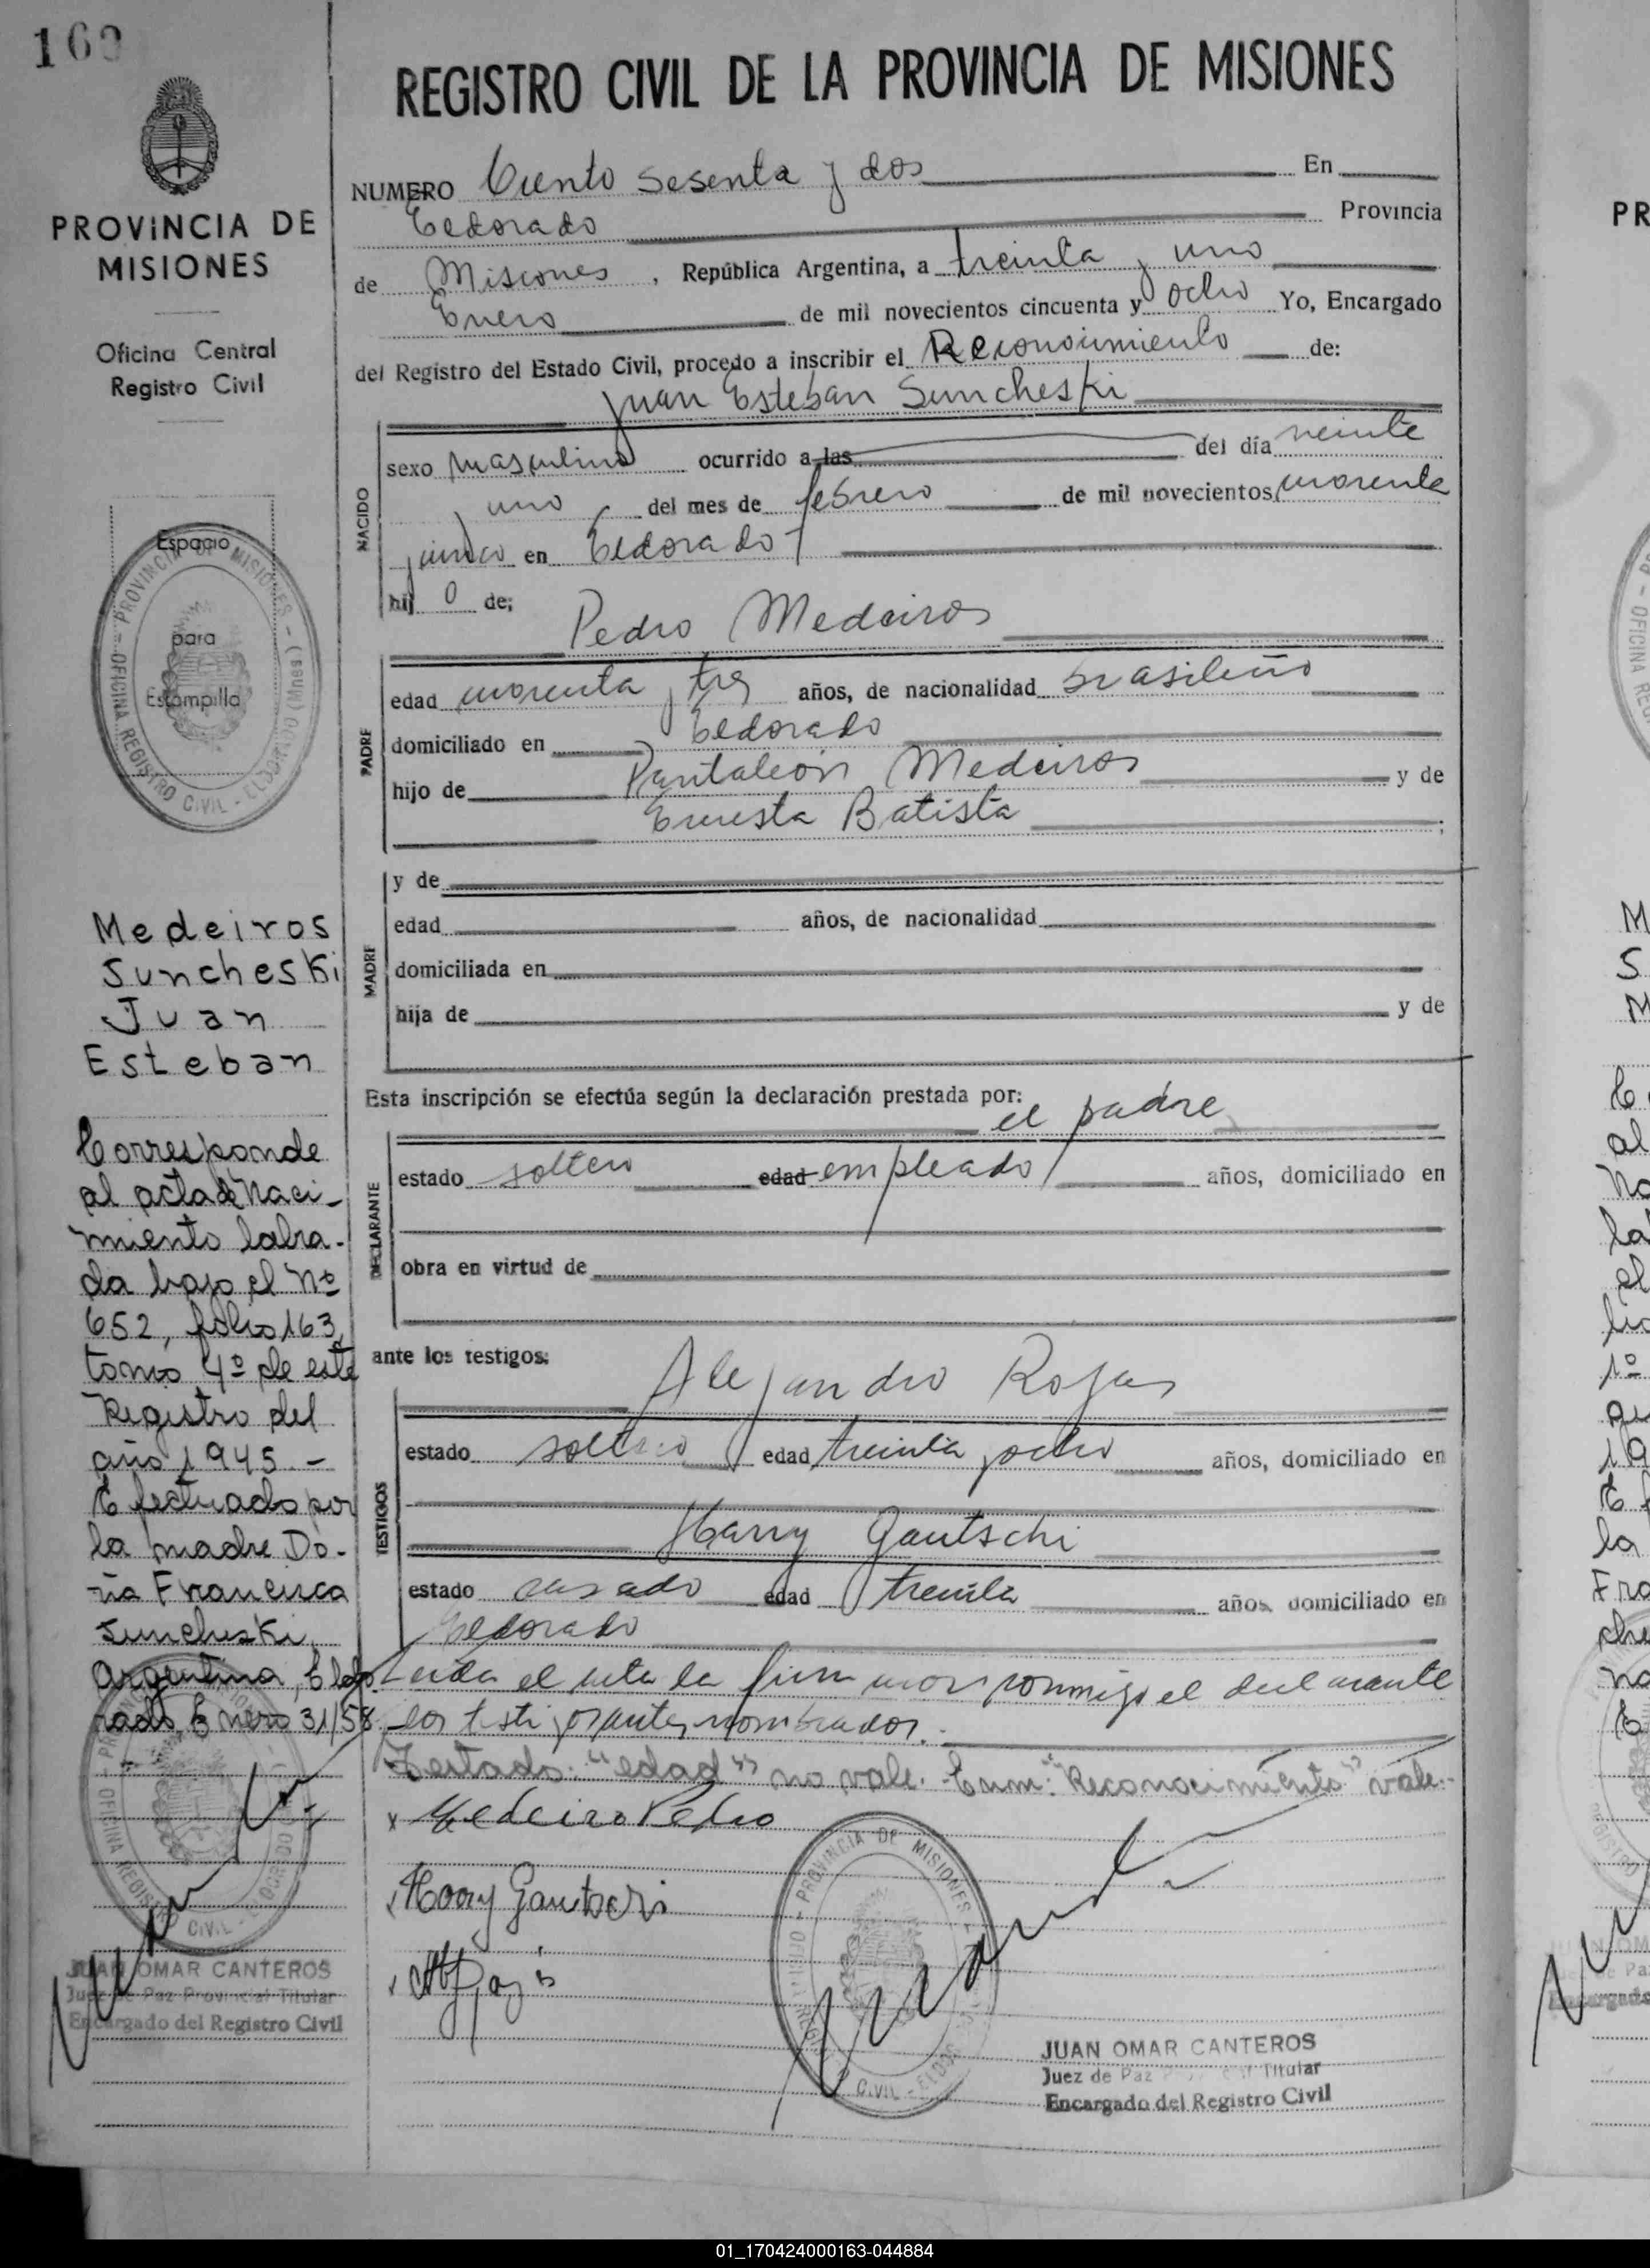 160
PROVINCIA DE
MISIONES
Oficina Central
Registro Civil
Espacio
para
Estampilla
PROVINCIA DE MISIONES - OFICINA REGISTRO CIVIL - ELDORADO (Mnes)
Medeiros
Suncheski
Juan
Esteban
Corresponde
al acta de Naci-
miento labra-
da bajo el Nº
652, folio 163,
tomo 4º de este
Registro del
año 1945 -
Efectuado por
la madre Do-
ña Francisca
Suncheski,
Argentina, Eldo-
rado, Enero 31/58
JUAN OMAR CANTEROS
Juez de Paz Provincial Titular
Encargado del Registro Civil
REGISTRO CIVIL DE LA PROVINCIA DE MISIONES
NUMERO Ciento sesenta y dos En
Eldorado Provincia
de Misiones, República Argentina, a treinta y uno
Enero de mil novecientos cincuenta y ocho Yo, Encargado
del Registro del Estado Civil, procedo a inscribir el Reconocimiento de:
Juan Esteban Suncheski
NACIDO
sexo masculino ocurrido a las del día veinte
y uno del mes de febrero de mil novecientos cuarenta
y cinco en Eldorado
hij o de;
Pedro Medeiros
PADRE
edad cuarenta y tres años, de nacionalidad brasileño
domiciliado en Eldorado
hijo de Pantaleón Medeiros y de
Ernesta Batista
MADRE
y de
edad años, de nacionalidad
domiciliada en
hija de y de
Esta inscripción se efectúa según la declaración prestada por:
el padre
DECLARANTE
estado soltero edad empleado años, domiciliado en
obra en virtud de
ante los testigos:
Alejandro Rojas
TESTIGOS
estado soltero edad treinta y ocho años, domiciliado en
Harry Gautschi
estado casado edad treinta años domiciliado en
Eldorado
Leida el acta la firman conmigo el declarante
y los testigos antes nombrados.
Testado: "edad" no vale. -Enm: "Reconocimiento" vale.-
x Medeiro Pedro
Harry Gautschi
PROVINCIA DE MISIONES
JUAN OMAR CANTEROS
Juez de Paz Titular
Encargado del Registro Civil
PR
01_170424000163-044884